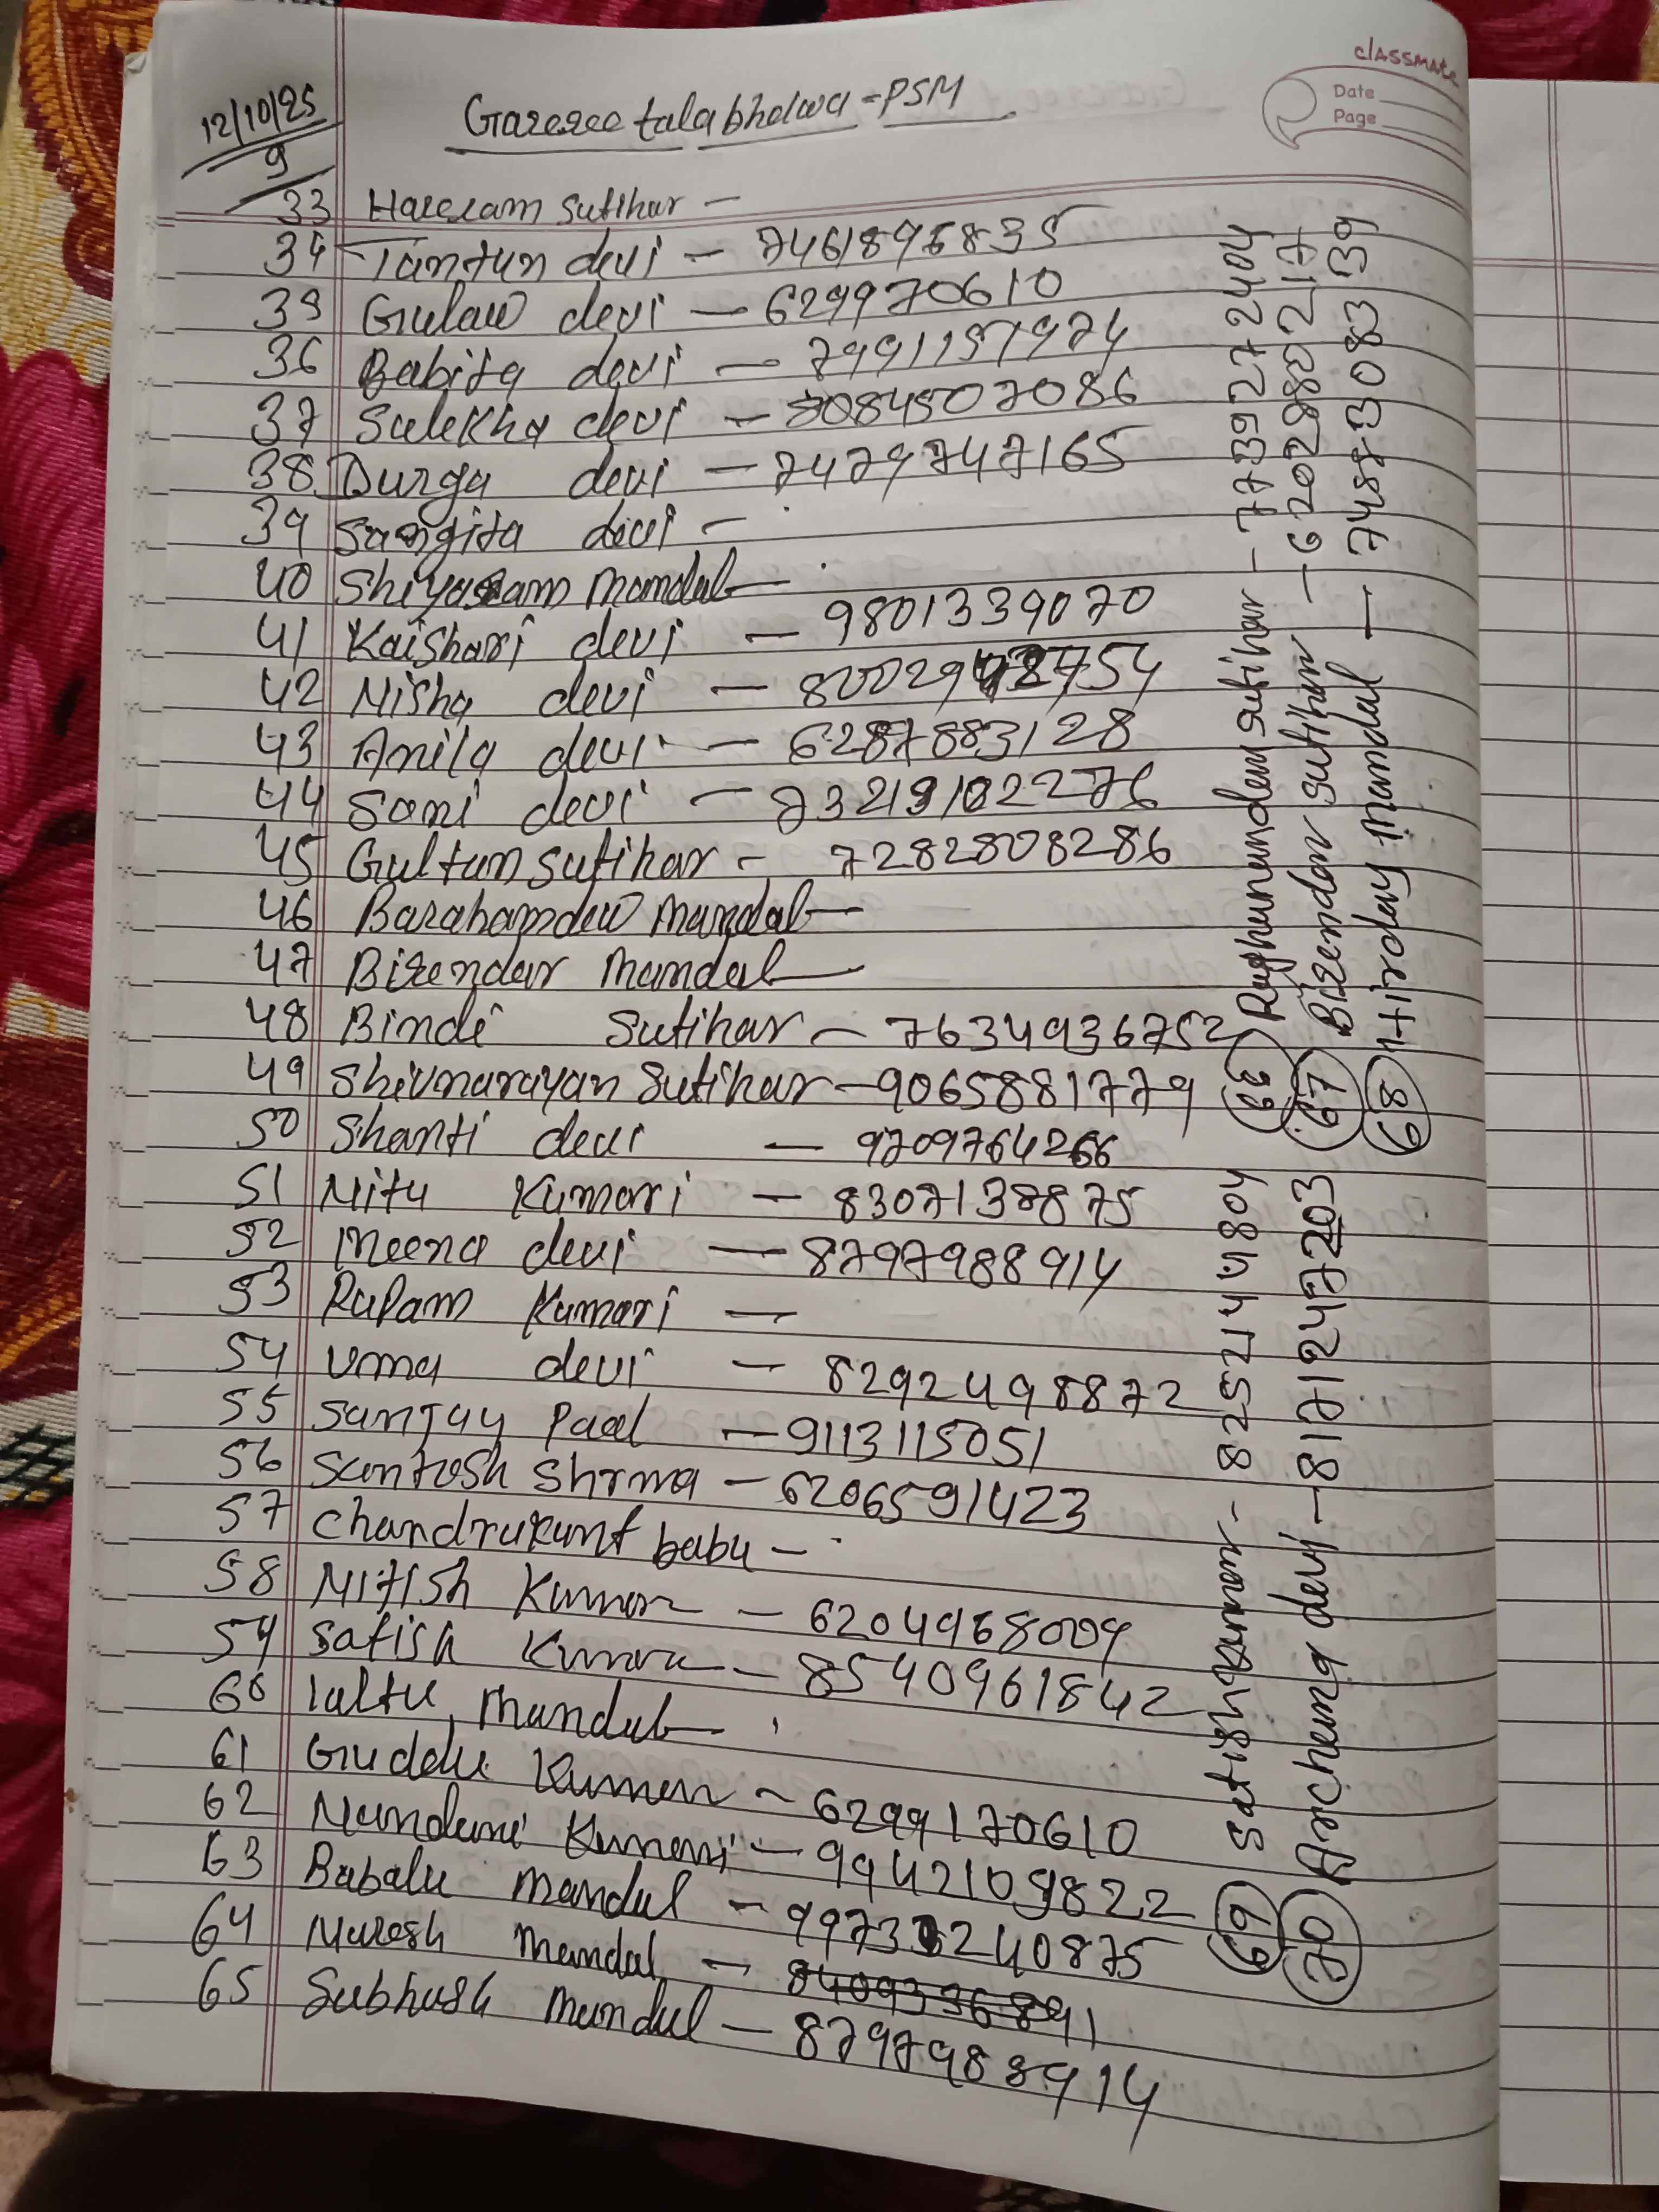 classmate
Date
Page
12/10/25
9
Gareree talabhelwa - PSM
33 Hareram Sutihar -
34 Tantun devi - 7461896835
35 Gulaw devi - 629970610
36 Babita devi - 7991157974
37 Sulekha devi - 8084507086
38 Durga devi - 7479747165
39 Sangita devi -
40 Shiyaram Mandal -
41 Kaishari devi - 9801339070
42 Nisha devi -
43 Anila devi - 6287883128
44 Soni devi - 73219102276
45 Gultun Sutihar - 7282808286
46 Barahamdew Mandal -
47 Birendar Mandal -
48 Bindi Sutihar - 7634936752
49 Shivnarayan Sutihar - 9065881779
50 Shanti devi - 9709764266
51 Nitu Kumari - 8307138875
52 Meena devi - 8797988914
53 Rupam Kumari -
54 Uma devi - 8292498872
55 Sanjay Paal - 9113115051
56 Santosh Shrma - 6206591423
57 Chandrakant babu -
58 Nitish Kumar - 6204968009
59 Satish Kumar - 8540961842
60 laltu Mandal -
61 Guddu Kumar - 6299170610
62 Nandani Kumari - 9942109822
63 Babalu Mandal -
64 Naresh Mandal - 8409336891
65 Subhash Mandal - 8797988914
66 Raghunandan Sutihar - 7739272404
67 Birendar Sutihar - 6202980217
68 Hiroday Mandal - 7488308339
69 Satish Kumar - 8252144804
70 Archana devi - 8171247203